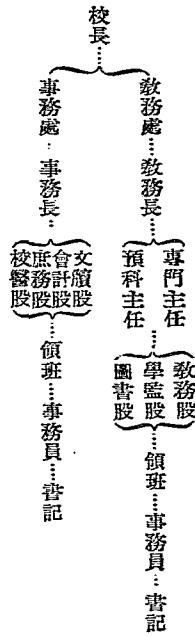 校長
教務處……教務長
專門主任
預科主任
教務股
學監股
圖書股
領班……事務員……書記
事務處……事務長
文牘股
會計股
庶務股
校醫股
領班……事務員……書記